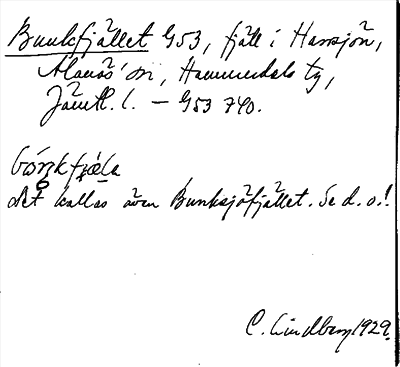 Bunkfjället G53, fjäll i Hansjön,
Alanäs sn, Hammerdals tg,
Jämtl. l. — G53 740.
det kallas även Bunksjöfjället. Se d. o.!
C. Lindberg 1929.